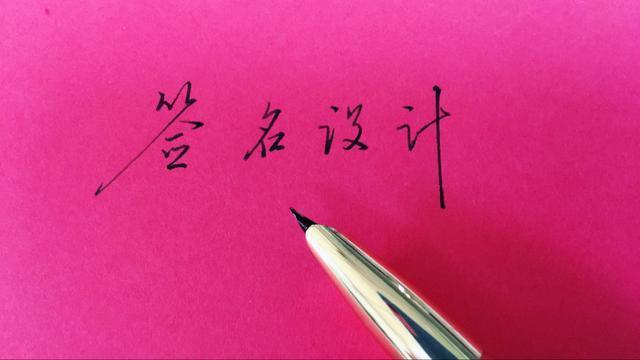 签名设计